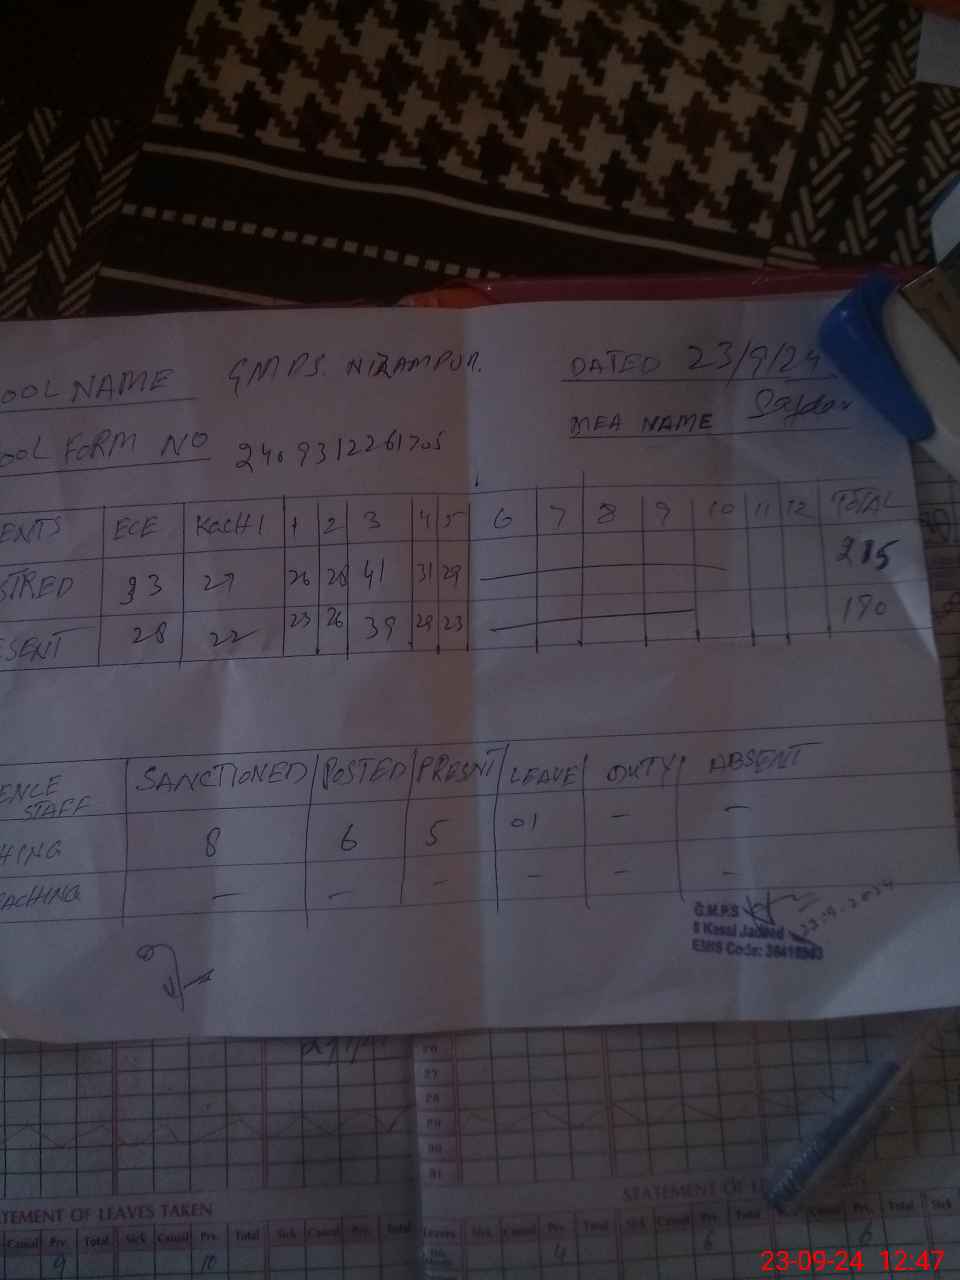 OOL NAME GMPS. NIZAMPUR. DATED 23/9/24
MEA NAME
OOL FORM NO 240 9312261705
ENTS ECE KACHI 1 2 3 4 5 6 7 8 9 10 11 12 TOTAL
STRED 33 27 26 28 41 31 29 215
SENT 28 22 23 26 39 29 23 190
ENCE STAFF SANCTIONED POSTED PRESNT LEAVE DUTY ABSENT
HING 8 6 5 01 - -
EACHING - - - - - -
G.M.P.S
8 Kassi Jadeed 23-9-2024
EMIS Code:
27
28
29
30
31
TEMENT OF LEAVES TAKEN
STATEMENT OF
Casual Prv. Total Sick Casual Prv. Total Sick Casual Prv. Total Leaves Sick Casual Prv. Total Sick Casual Prv. Total Casual Prv. Total Sick
9 10 4 6 6
23-09-24 12:47